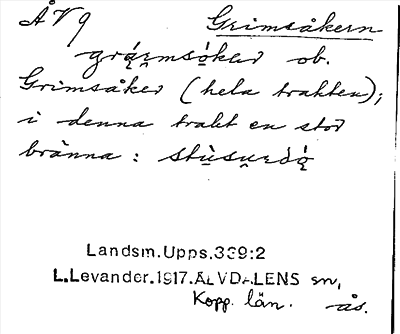 ÅV9 Grimsåkern
ob.
Grimsåker (hela trakten);
i denna trakt en stor
bränna :
Landsm.Upps.339:2
L.Levander.1917.ÄLVDALENS sn,
Kopp. län. -ås.